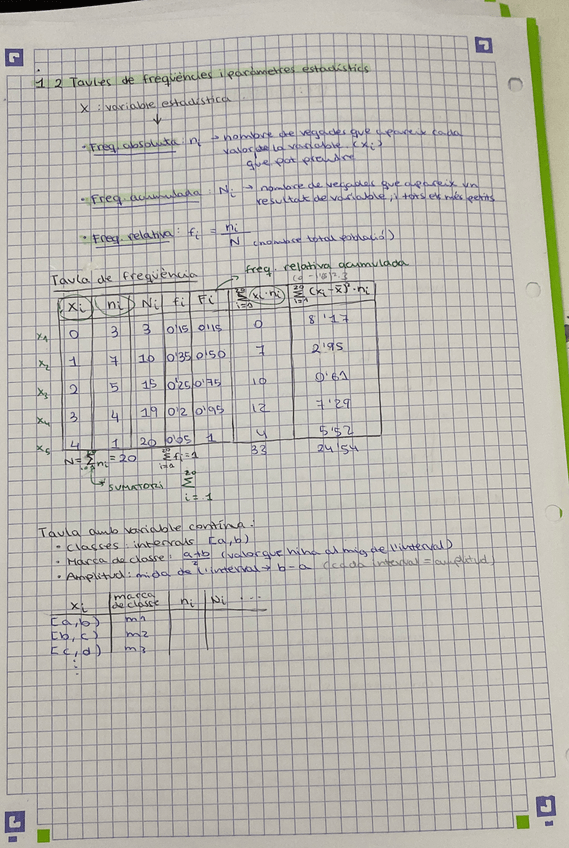 1.2 Taules de freqüències i paràmetres estadístics
X : variable estadística
↓
• Freq. absoluta: ni → nombre de vegades que apareix cada
valor de la variable (xi)
que pot prendre
• Freq. acumulada: Ni → nombre de vegades que apareix un
resultat de variable, i tots els més petits
• Freq. relativa: fi = ni/N (nombre total població)
Taula de freqüència → freq. relativa acumulada
xi | ni | Ni | fi | Fi | Σ(xi·ni) | Σ(xi-x̄)²·ni
x1 0 | 3 | 3 | 0'15 | 0'15 | 0 | 8'17
x2 1 | 7 | 10 | 0'35 | 0'50 | 7 | 2'95
x3 2 | 5 | 15 | 0'25 | 0'75 | 10 | 0'61
x4 3 | 4 | 19 | 0'2 | 0'95 | 12 | 7'29
x5 4 | 1 | 20 | 0'05 | 1 | 4 | 5'52
N = Σ ni = 20 Σ fi = 1 33 24'54
↳ SUMATORI 20 Σ i = 1
Taula amb variable contínua:
• Classes: intervals [a,b)
• Marca de classe: a+b/2 (valor que hi ha al mig de l'interval)
• Amplitud: mida de l'interval → b-a (cada interval = amplitud)
xi | marca de classe | ni | Ni ...
[a,b) | m1
[b,c) | m2
[c,d) | m3
⋮